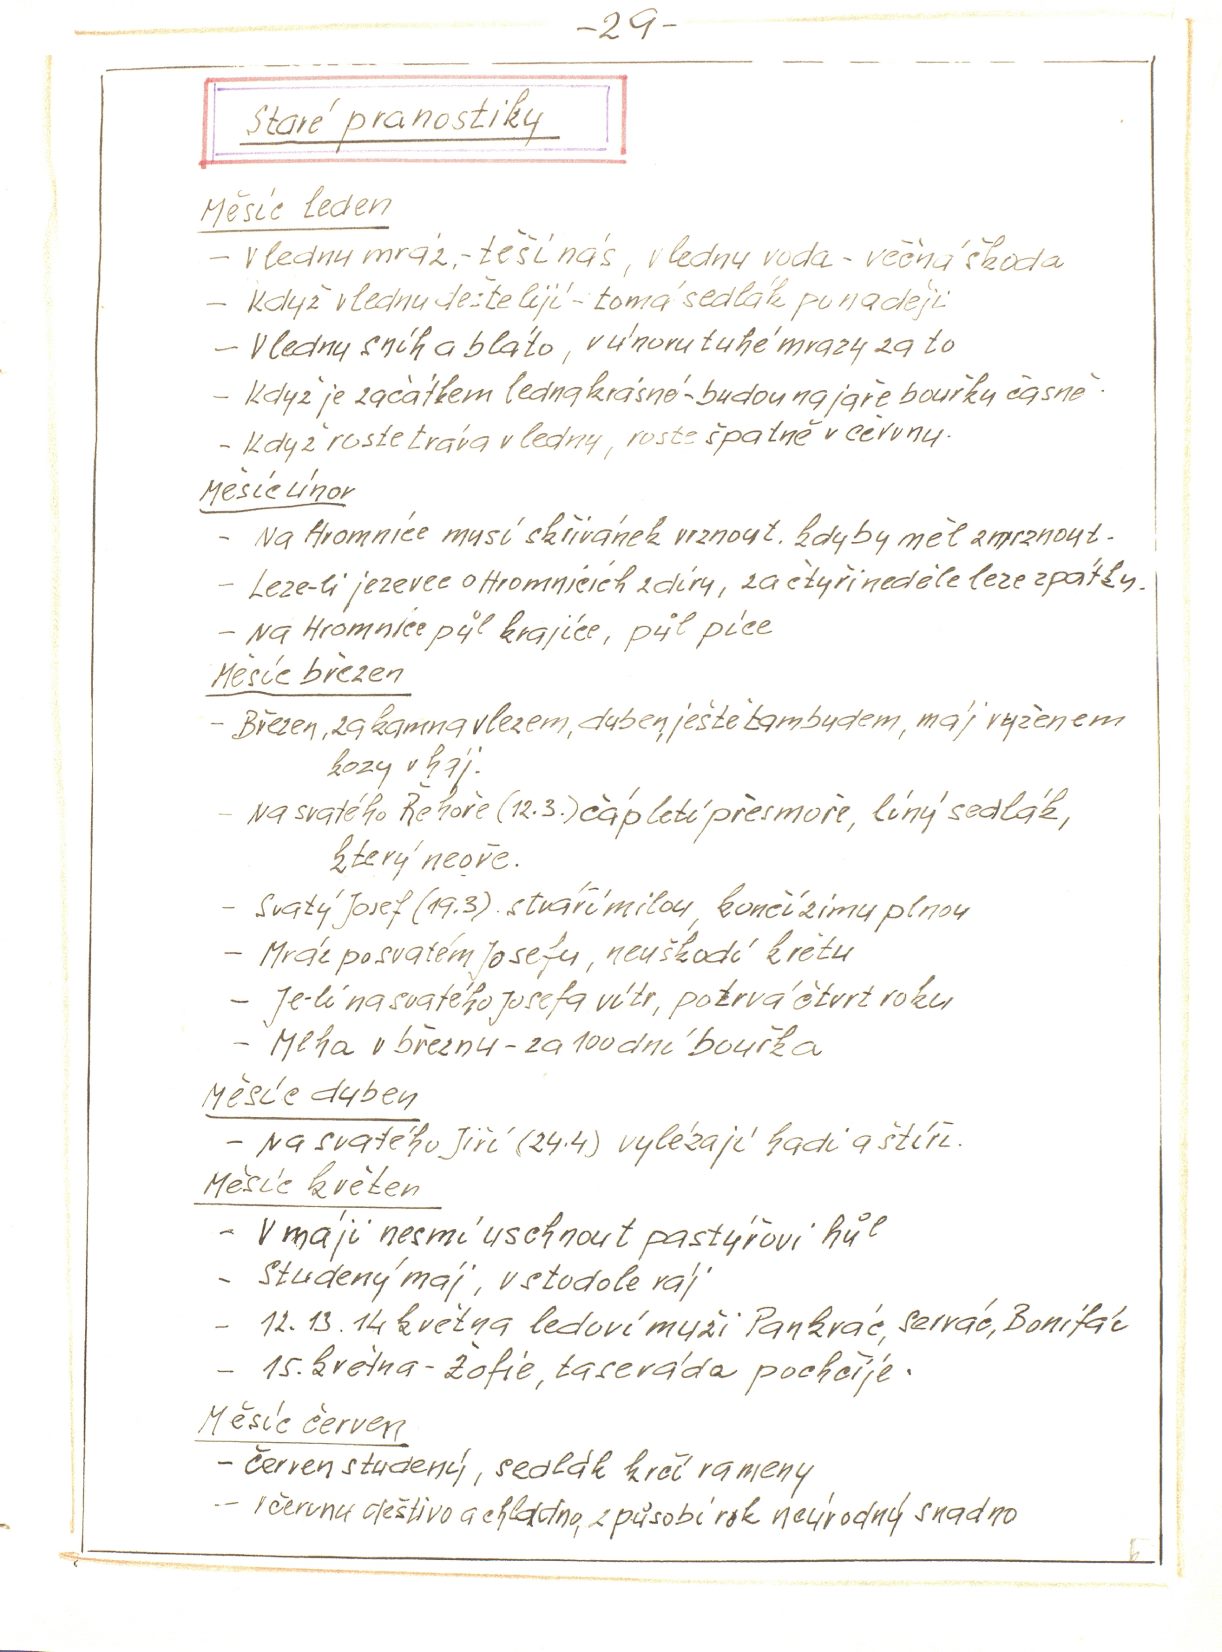 -29-
Staré pranostiky
Měsíc leden
- V lednu mráz,- těší nás, v lednu voda - věčná škoda
- Když v lednu deště lijí - tomá sedlák po naději
- V lednu sníh a bláto, v únoru tuhé mrazy za to
- Když je začátkem ledna krásné - budou na jaře bouřky časné.
- Když roste tráva v lednu, roste špatně v červnu.
Měsíc únor
- Na Hromnice musí skřivánek vrznout. kdyby měl zmrznout.
- Leze-li jezevec o Hromnicích z díry, za čtyři neděle leze zpátky.
- Na Hromnice půl krajíce, půl píce
Měsíc březen
- Březen, za kamna vlezem, duben, ještě tam budem, máj vyženem
kozy v háj.
- Na svatého Řehoře (12.3.) čáp letí přes moře, líný sedlák,
který neoře.
- Svatý Josef (19.3). s tváří milou, končí zimu plnou
- Mráz po svatém Josefu, neuškodí květu
- Je-li na svatého Josefa vítr, potrvá čtvrt roku
- Mlha v březnu - za 100 dní bouřka
Měsíc duben
- Na svatého Jiří (24.4) vylézají hadi a štíři.
Měsíc květen
- V máji nesmí uschnout pastýřovi hůl
- Studený máj, v stodole ráj
- 12. 13. 14 května ledoví muži Pankrác, Servác, Bonifác
- 15. května - Žofie, ta se ráda pochčije.
Měsíc červen
- červen studený, sedlák krčí rameny
- v červnu deštivo a chladno, způsobí rok neúrodný snadno